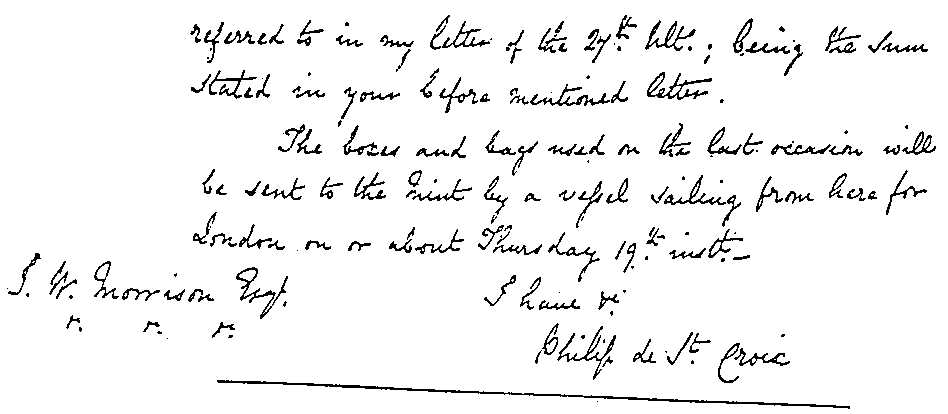 referred to in my letter of the 27th Ult.; being the sum
stated in your before mentioned letter.
The boxes and bags used on the last occasion will
be sent to the Mint by a vessel sailing from here for
London on or about Thursday 19th inst.—
J. W. Morrison Esq.
&c. &c. &c.
I have &c.
Philip de St. Croix